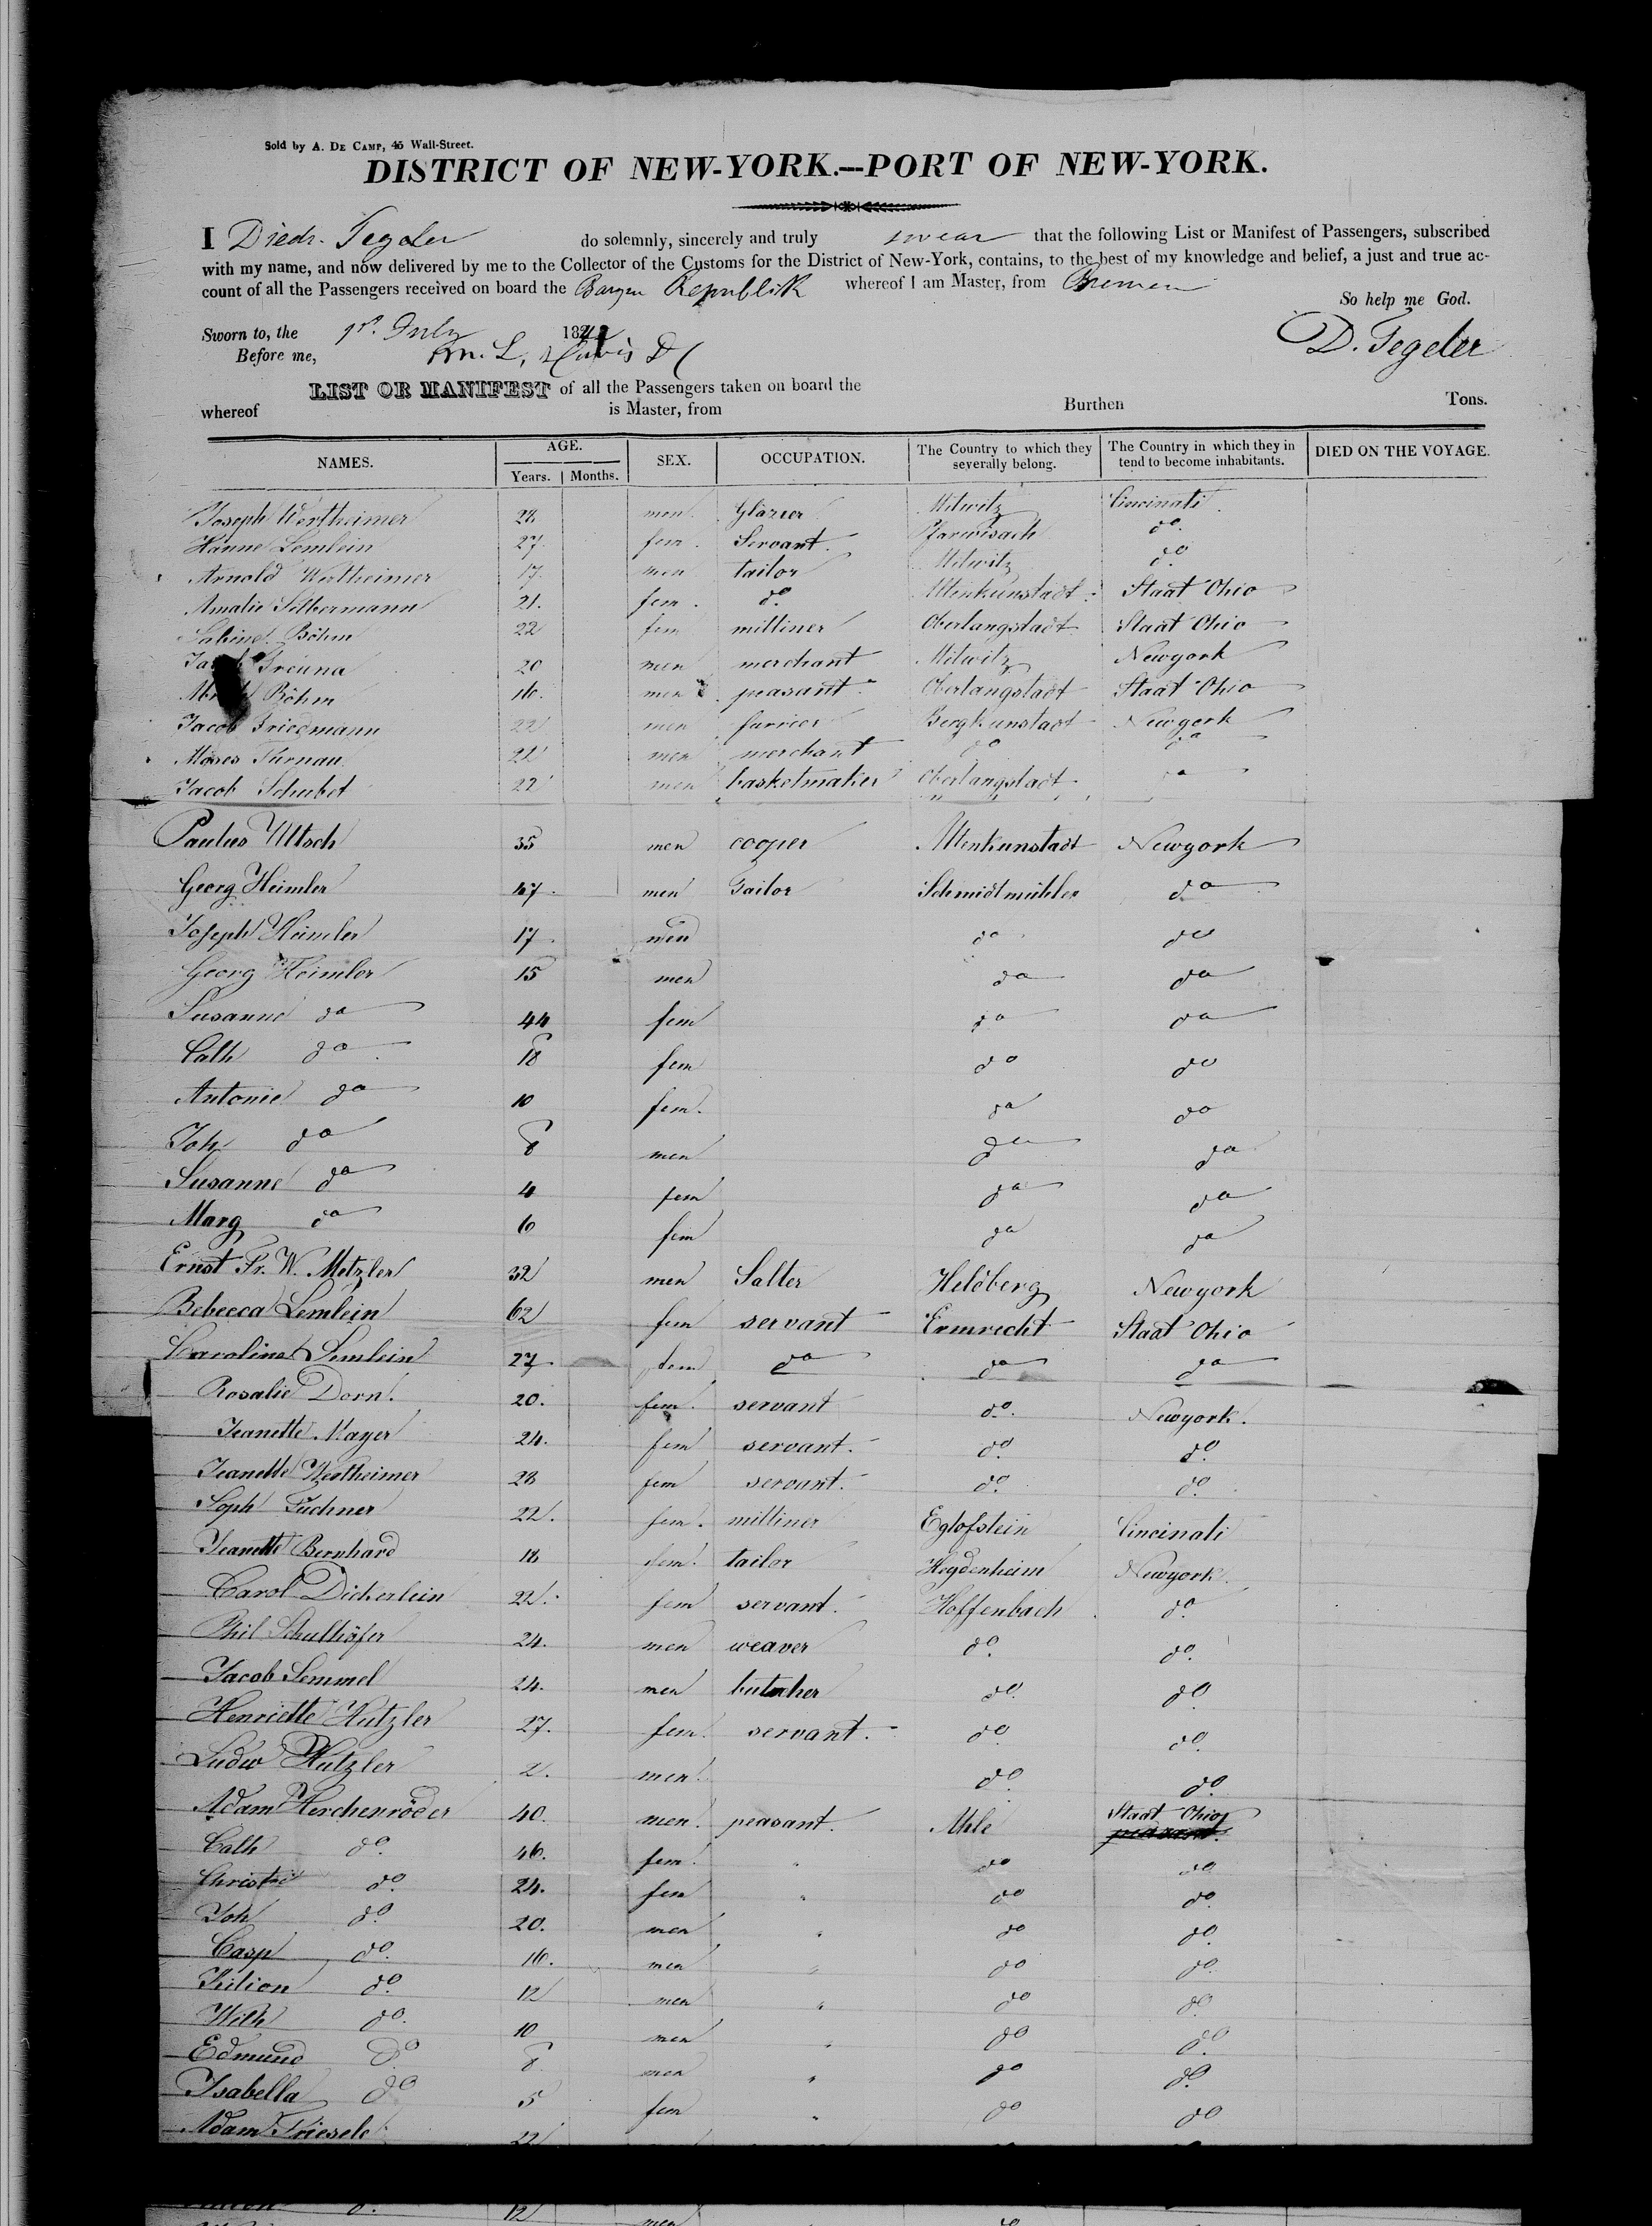 Sold by A. DE CAMP, 45 Wall-Street.
DISTRICT OF NEW-YORK.—PORT OF NEW-YORK.
I Diedr. Tegeler do solemnly, sincerely and truly swear that the following List or Manifest of Passengers, subscribed
with my name, and now delivered by me to the Collector of the Customs for the District of New-York, contains, to the best of my knowledge and belief, a just and true ac-
count of all the Passengers received on board the Barque Republik whereof I am Master, from Bremen
So help me God.
Sworn to, the 1st. July 1841
Before me, D. Tegeler
LIST OR MANIFEST of all the Passengers taken on board the
whereof is Master, from Burthen Tons.
NAMES. AGE. Years. Months. SEX. OCCUPATION. The Country to which they severally belong. The Country in which they in tend to become inhabitants. DIED ON THE VOYAGE.
Joseph Wertheimer 28 men Glazier Mitwitz Cincinati
Hanne Lemlein 27 fem. Servant. do.
Arnold Wertheimer 17. men tailor Mitwitz do.
Amalie Silbermann 21. fem. do. Altenkunstadt Staat Ohio
Sabine Böhm 22 fem milliner Oberlangstadt Staat Ohio
20 men merchant Mitwitz Newyork
Böhm 16. men peasant. Oberlangstadt Staat Ohio
Jacob Friedmann 22 men furrier Burgkunstadt Newyork
Moses Thurnau 21 men merchant do do
Jacob Schubet 22 men basketmaker Oberlangstadt do
Paulus Ultsch 35 men cooper Altenkunstadt Newyork
Georg Heimler 47. men Tailor Schmidtmühlen do
Joseph Heimler 17. men do do
Georg Heimler 15 men do do
Susanne do 44 fem do do
Cath do 18 fem do do
Antonie do 10 fem. do do
Joh do 8 men do do
Susanne do 4 fem do do
Marg do 6 fem do do
Ernst Fr. W. Metzler 32 men Salter Heldberg Newyork
Rebecca Lemlein 62 fem servant Ermrecht Staat Ohio
Caroline Lemlein 27. fem do do do
Rosalie Dorn. 20. fem. servant do. Newyork.
Jeanette Mayer 24. fem servant. do. do.
Jeanette Wertheimer 28 fem servant. do. do.
Soph Füchner 22. fem. milliner Eglofstein Cincinati
Jeanette Bernhard 18 fem. tailor Hegdenheim Newyork.
Carol Dickerlein 22. fem servant. Hoffenbach do.
Phil Schulhöfer 24. men weaver do. do.
Jacob Semmel 24. men butcher do. do.
Henriette Hutzler 27. fem. servant. do. do.
Ludw Hutzler 2. men. do. do.
Adam Herchenröder 40. men. peasant. Uhle Staat Ohio
Cath do. 46. fem. " do do
Christne do. 24. fem " do do.
Joh do. 20. men " do do.
Casp do. 16. men " do do.
Kilion do. 12 men " do do.
Wilh do. 10 men " do do.
Edmund do 8 men " do do.
Isabella do 5 fem " do do
Adam Friesele 22
do. 12 men